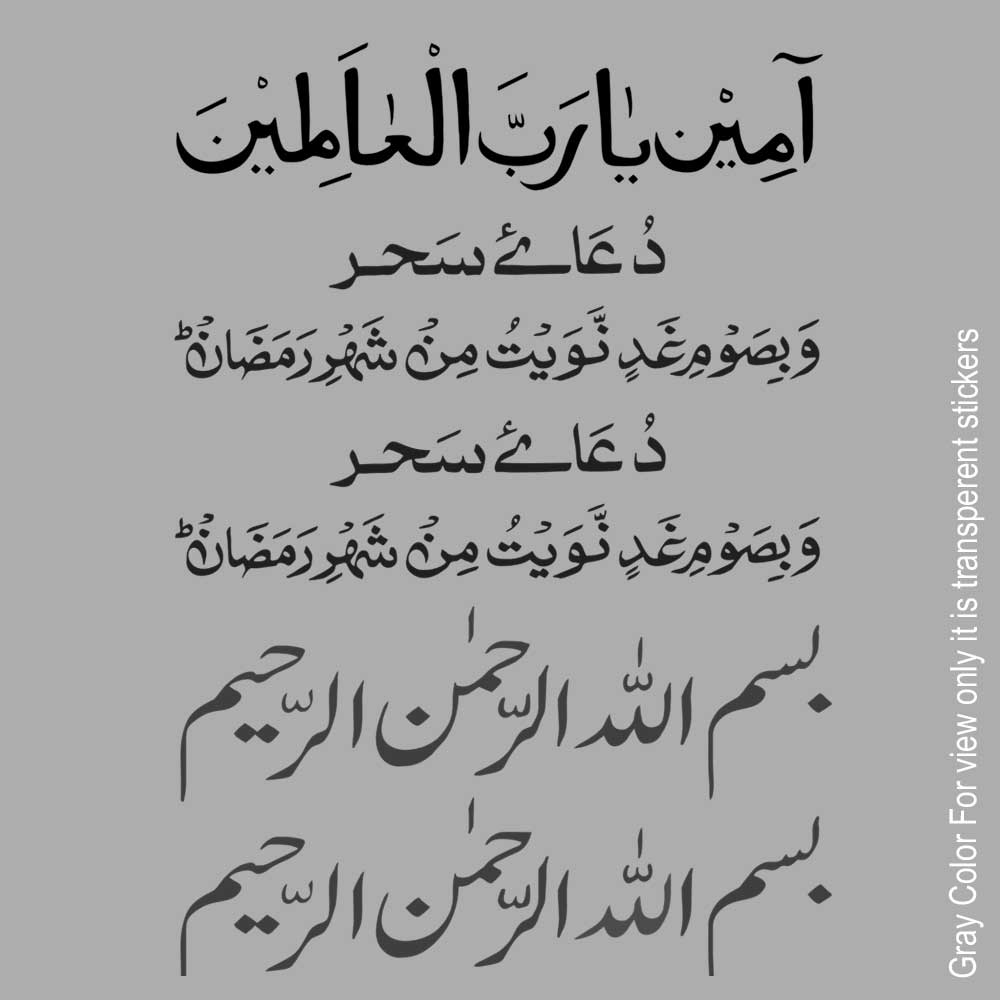 آمِيْن يٰا رَبَّ الْعٰالَمِيْنَ
دُعَائے سَحر
وَبِصَوْمِ غَدٍ نَّوَيْتُ مِنْ شَهْرِ رَمَضَانْ ؕ
دُعَائے سَحر
وَبِصَوْمِ غَدٍ نَّوَيْتُ مِنْ شَهْرِ رَمَضَانْ ؕ
بسم اللّٰه الرّحمٰن الرّحيم
بسم اللّٰه الرّحمٰن الرّحيم
Gray Color For view only it is transperent stickers